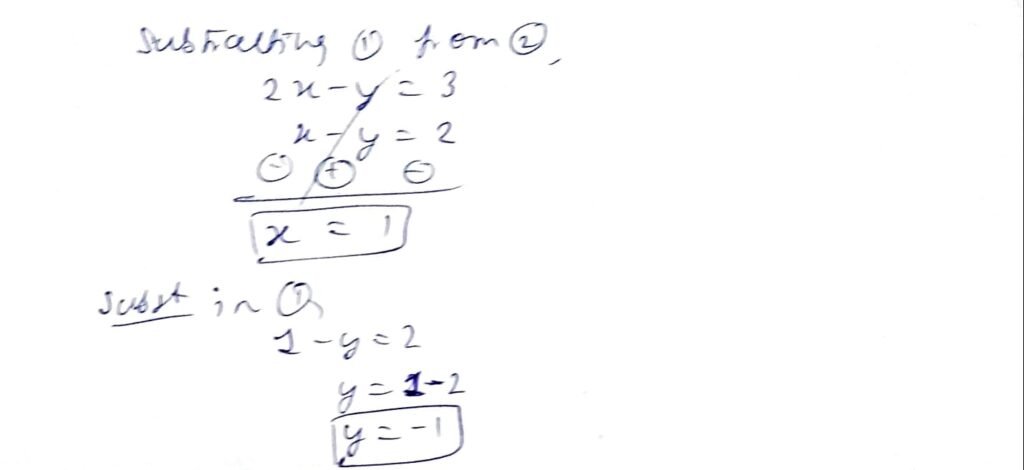 Subtracting ① from ②,
2x - y = 3
x - y = 2
⊖ ⊕ ⊖
x = 1
Subst in ①,
1 - y = 2
y = 1 - 2
y = -1